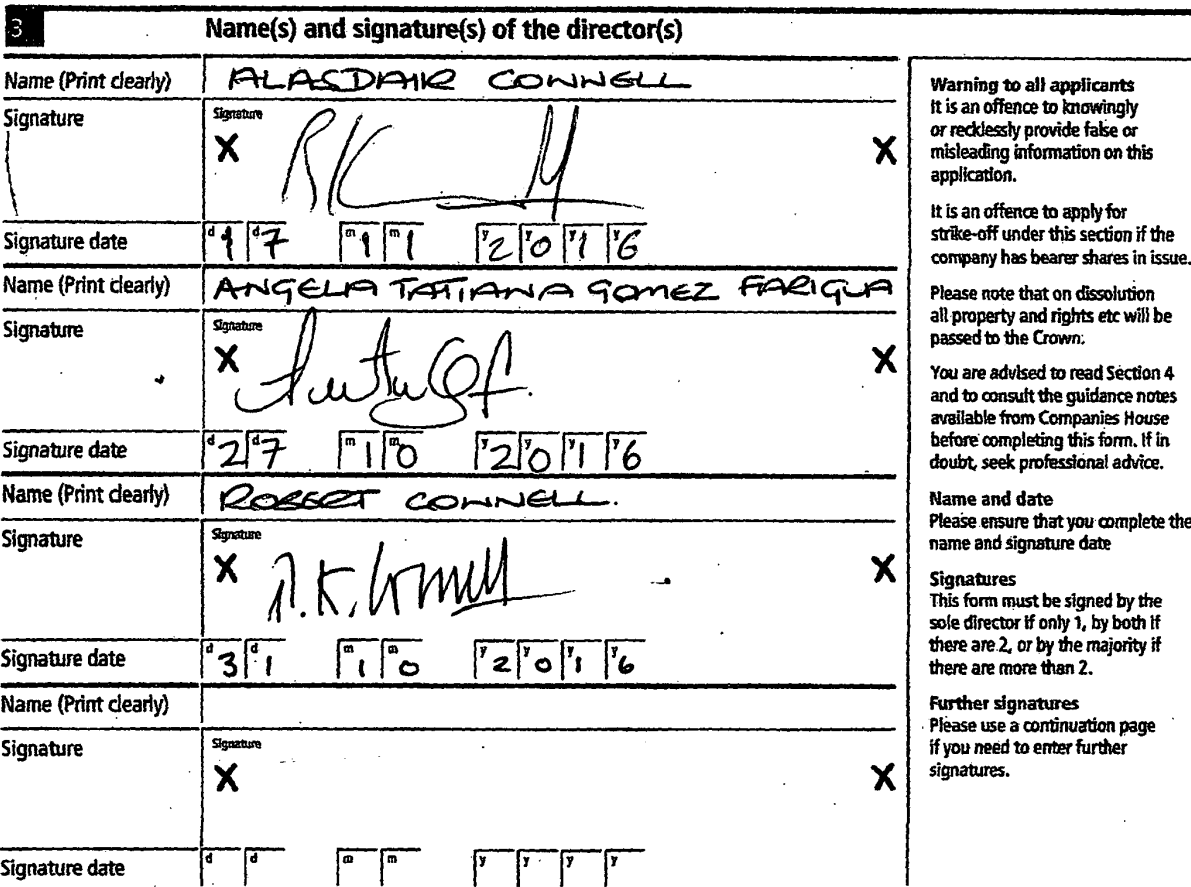 3 Name(s) and signature(s) of the director(s)
Name (Print clearly) ALASDAIR CONNELL
Signature Signature
X X
Signature date d 1 d 7 m 1 m 1 y 2 y 0 y 1 y 6
Name (Print clearly) ANGELA TATIANA GOMEZ FARIGUA
Signature Signature
X X
Signature date d 2 d 7 m 1 m 0 y 2 y 0 y 1 y 6
Name (Print clearly) ROBERT CONNELL.
Signature Signature
X R.K. Connell X
Signature date d 3 d 1 m 1 m 0 y 2 y 0 y 1 y 6
Name (Print clearly)
Signature Signature
X X
Signature date d d m m y y y y
Warning to all applicants
It is an offence to knowingly
or recklessly provide false or
misleading information on this
application.
It is an offence to apply for
strike-off under this section if the
company has bearer shares in issue.
Please note that on dissolution
all property and rights etc will be
passed to the Crown.
You are advised to read Section 4
and to consult the guidance notes
available from Companies House
before completing this form. If in
doubt, seek professional advice.
Name and date
Please ensure that you complete the
name and signature date
Signatures
This form must be signed by the
sole director if only 1, by both if
there are 2, or by the majority if
there are more than 2.
Further signatures
Please use a continuation page
if you need to enter further
signatures.